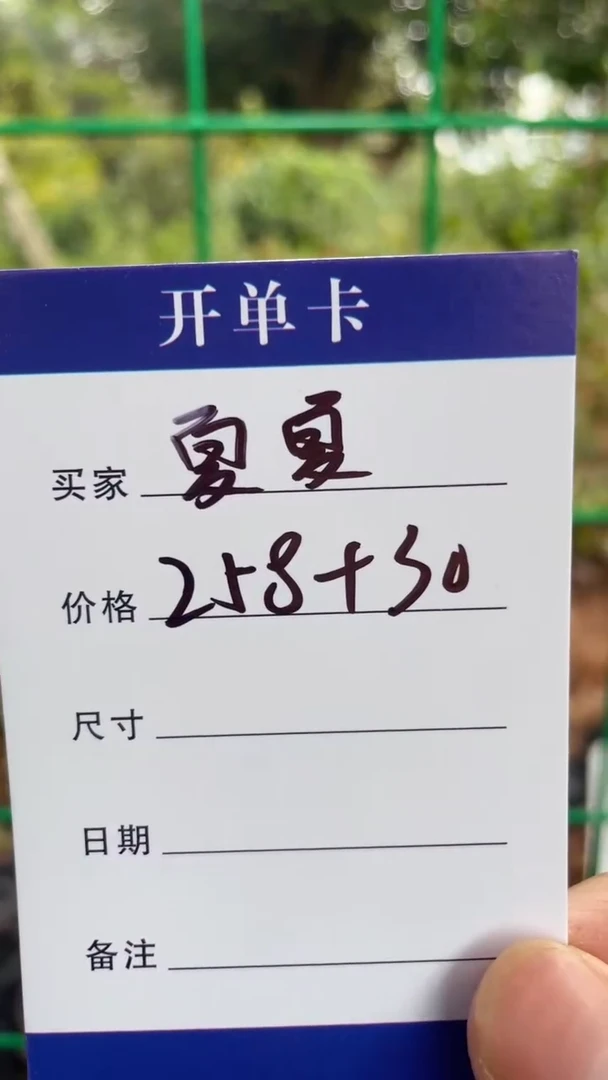 开单卡
买家 夏夏
价格 258+30
尺寸
日期
备注